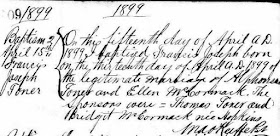 09/1899
1899
Baptism of
April 15th
Francis
Joseph
Toner
On this fifteenth day of April A.D.
1899 I baptised Francis Joseph born
on the thirteenth day of April A.D. 1899 of
the legitimate marriage of Alphonsus
Toner and Ellen McCormack. The
sponsors were = Thomas Toner and
Bridget McCormack nee Hopkins